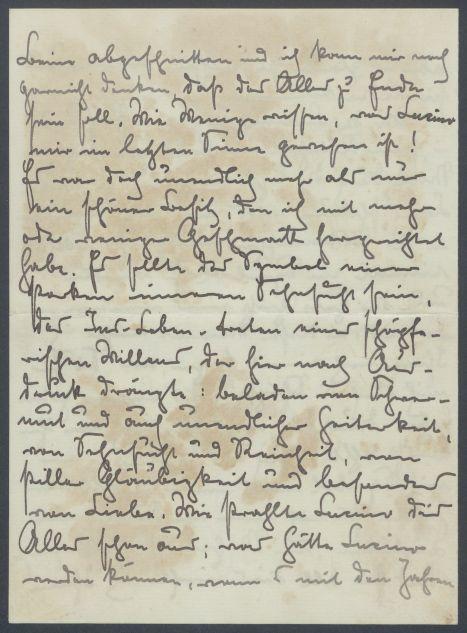 Lucino abgeschnitten und ich kann mir noch
garnicht denken, daß das Alles zu Ende
sein soll. Wie Wenige wissen, was Lucino
mir im letzten Sinne gewesen ist!
Es war doch unendlich mehr als nur
ein schöner Besitz, den ich mit mehr
oder weniger Geschmack hergerichtet
habe. Es sollte das Symbol einer
starken inneren Sehnsucht sein,
das Ins-Leben-treten eines schöpfe-
rischen Willens, der hier nach Aus-
druck drängte: beladen von Schwer-
mut und auch unendlicher Heiterkeit,
von Sehnsucht und Reinheit, von
stiller Gläubigkeit und besonders
von Liebe. Wie strahlte Lucino dies
Alles schon aus; was hätte Lucino
werden können, wenn es mit den Jahren